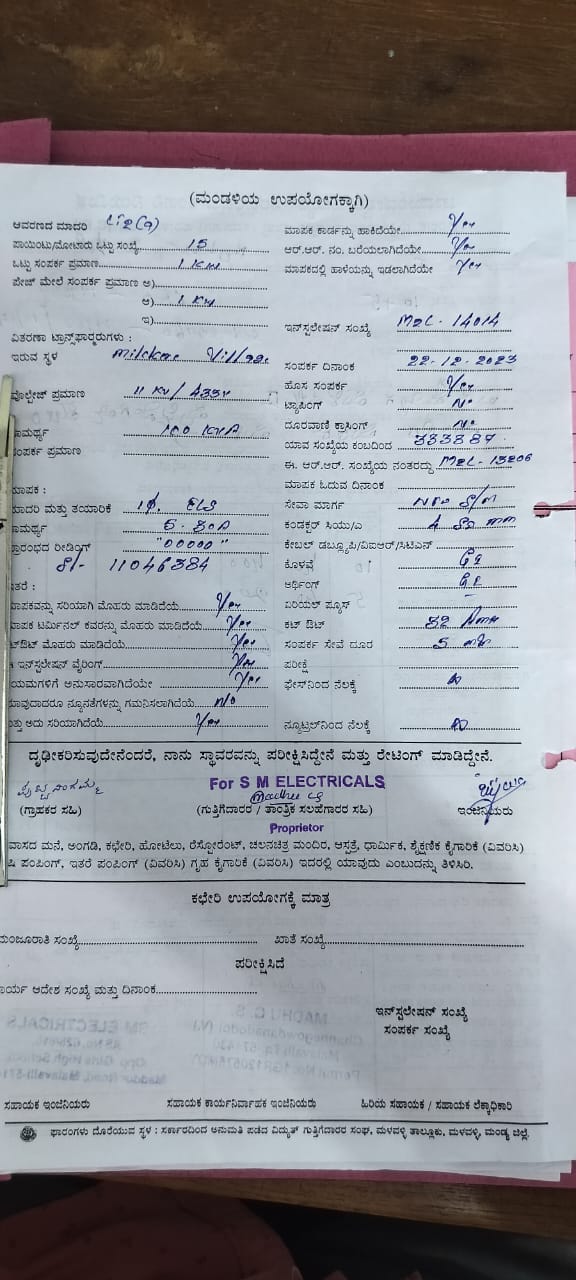 (ಮಂಡಳಿಯ ಉಪಯೋಗಕ್ಕಾಗಿ)
ಆವರಣದ ಮಾದರಿ
ಮಾಪಕ ಕಾರ್ಡನ್ನು ಹಾಕಿದೆಯೇ Yes
ಪಾಯಿಂಟು/ಮೋಟಾರು ಒಟ್ಟು ಸಂಖ್ಯೆ 15
ಆರ್.ಆರ್. ನಂ. ಬರೆಯಲಾಗಿದೆಯೇ Yes
ಒಟ್ಟು ಸಂಪರ್ಕ ಪ್ರಮಾಣ 1 KW
ಮಾಪಕದಲ್ಲಿ ಹಾಳೆಯನ್ನು ಇಡಲಾಗಿದೆಯೇ Yes
ಪೇಜ್ ಮೇಲೆ ಸಂಪರ್ಕ ಪ್ರಮಾಣ ಅ)
ಆ) 1 KW
ಇ)
ಇನ್‌ಸ್ಟಲೇಷನ್ ಸಂಖ್ಯೆ M2L-14014
ವಿತರಣಾ ಟ್ರಾನ್ಸ್‌ಫಾರ್ಮರುಗಳು :
ಇರುವ ಸ್ಥಳ Village
ಸಂಪರ್ಕ ದಿನಾಂಕ 22-12-2023
ಹೊಸ ಸಂಪರ್ಕ Yes
ವೊಲ್ಟೇಜ್ ಪ್ರಮಾಣ 11 KV/433V
ಟ್ಯಾಪಿಂಗ್ No
ದೂರವಾಣಿ ಕ್ರಾಸಿಂಗ್ No
ಾಮರ್ಥ್ಯ 100 KVA
ಯಾವ ಸಂಖ್ಯೆಯ ಕಂಬದಿಂದ 333887
ಸಂಪರ್ಕ ಪ್ರಮಾಣ
ಈ. ಆರ್.ಆರ್. ಸಂಖ್ಯೆಯ ನಂತರದ್ದು M2L-13206
ಮಾಪಕ ಓದುವ ದಿನಾಂಕ
ಮಾಪಕ :
ಮಾದರಿ ಮತ್ತು ತಯಾರಿಕೆ 1φ.
ಸೇವಾ ಮಾರ್ಗ
ಾಮರ್ಥ್ಯ 5-30A
ಕಂಡಕ್ಟರ್ ಸಿಯು/ಎ 4 SQ mm
ಪ್ರಾರಂಭದ ರೀಡಿಂಗ್ "00000"
ಕೇಬಲ್ ಡಬ್ಲ್ಯೂಪಿ/ವಿಐಆರ್/ಸಿಟಿಎನ್
Sl- 11046384
ಕೊಳವೆ GI
ಅರ್ಥಿಂಗ್ GI
ತರೆ :
ಏರಿಯಲ್ ಪ್ಯೂಸ್ –
ಮಾಪಕವನ್ನು ಸರಿಯಾಗಿ ಮೊಹರು ಮಾಡಿದೆಯೆ Yes
ಕಟ್ ಔಟ್ 32 Amps
ಮಾಪಕ ಟರ್ಮಿನಲ್ ಕವರನ್ನು ಮೊಹರು ಮಾಡಿದೆಯೆ Yes
ಟ್‌ಔಟ್ ಮೊಹರು ಮಾಡಿದೆಯೆ Yes
ಸಂಪರ್ಕ ಸೇವೆ ದೂರ 5
ಇನ್‌ಸ್ಟಲೇಷನ್ ವೈರಿಂಗ್ Yes
ಪರೀಕ್ಷೆ
ಯಮಗಳಿಗೆ ಅನುಸಾರವಾಗಿದೆಯೇ Yes
ಫೇಸ್‌ನಿಂದ ನೆಲಕ್ಕೆ
ಯಾವುದಾದರೂ ನ್ಯೂನತೆಗಳನ್ನು ಗಮನಿಸಲಾಗಿದೆಯೆ n/o
ತ್ತು ಅದು ಸರಿಯಾಗಿದೆಯೆ Yes
ನ್ಯೂಟ್ರಲ್‌ನಿಂದ ನೆಲಕ್ಕೆ
ದೃಢೀಕರಿಸುವುದೇನೆಂದರೆ, ನಾನು ಸ್ಥಾವರವನ್ನು ಪರೀಕ್ಷಿಸಿದ್ದೇನೆ ಮತ್ತು ರೇಟಿಂಗ್ ಮಾಡಿದ್ದೇನೆ.
For S M ELECTRICALS
(ಗ್ರಾಹಕರ ಸಹಿ)
(ಗುತ್ತಿಗೆದಾರರ / ತಾಂತ್ರಿಕ ಸಲಹೆಗಾರರ ಸಹಿ)
ಇಂಜಿನಿಯರು
Proprietor
ವಾಸದ ಮನೆ, ಅಂಗಡಿ, ಕಛೇರಿ, ಹೋಟೆಲು, ರೆಸ್ಟೋರೆಂಟ್, ಚಲನಚಿತ್ರ ಮಂದಿರ, ಆಸ್ಪತ್ರೆ, ಧಾರ್ಮಿಕ, ಶೈಕ್ಷಣಿಕ ಕೈಗಾರಿಕೆ (ವಿವರಿಸಿ)
ಷಿ ಪಂಪಿಂಗ್, ಇತರೆ ಪಂಪಿಂಗ್ (ವಿವರಿಸಿ) ಗೃಹ ಕೈಗಾರಿಕೆ (ವಿವರಿಸಿ) ಇದರಲ್ಲಿ ಯಾವುದು ಎಂಬುದನ್ನು ತಿಳಿಸಿರಿ.
ಕಛೇರಿ ಉಪಯೋಗಕ್ಕೆ ಮಾತ್ರ
ಮಂಜೂರಾತಿ ಸಂಖ್ಯೆ
ಖಾತೆ ಸಂಖ್ಯೆ
ಪರೀಕ್ಷಿಸಿದೆ
ಕಾರ್ಯ ಆದೇಶ ಸಂಖ್ಯೆ ಮತ್ತು ದಿನಾಂಕ
ಇನ್‌ಸ್ಟಲೇಷನ್ ಸಂಖ್ಯೆ
ಸಂಪರ್ಕ ಸಂಖ್ಯೆ
ಸಹಾಯಕ ಇಂಜಿನಿಯರು
ಸಹಾಯಕ ಕಾರ್ಯನಿರ್ವಾಹಕ ಇಂಜಿನಿಯರು
ಹಿರಿಯ ಸಹಾಯಕ / ಸಹಾಯಕ ಲೆಕ್ಕಾಧಿಕಾರಿ
ಫಾರಂಗಳು ದೊರೆಯುವ ಸ್ಥಳ : ಸರ್ಕಾರದಿಂದ ಅನುಮತಿ ಪಡೆದ ವಿದ್ಯುತ್ ಗುತ್ತಿಗೆದಾರರ ಸಂಘ, ಮಳವಳ್ಳಿ ತಾಲ್ಲೂಕು, ಮಳವಳ್ಳಿ, ಮಂಡ್ಯ ಜಿಲ್ಲೆ.